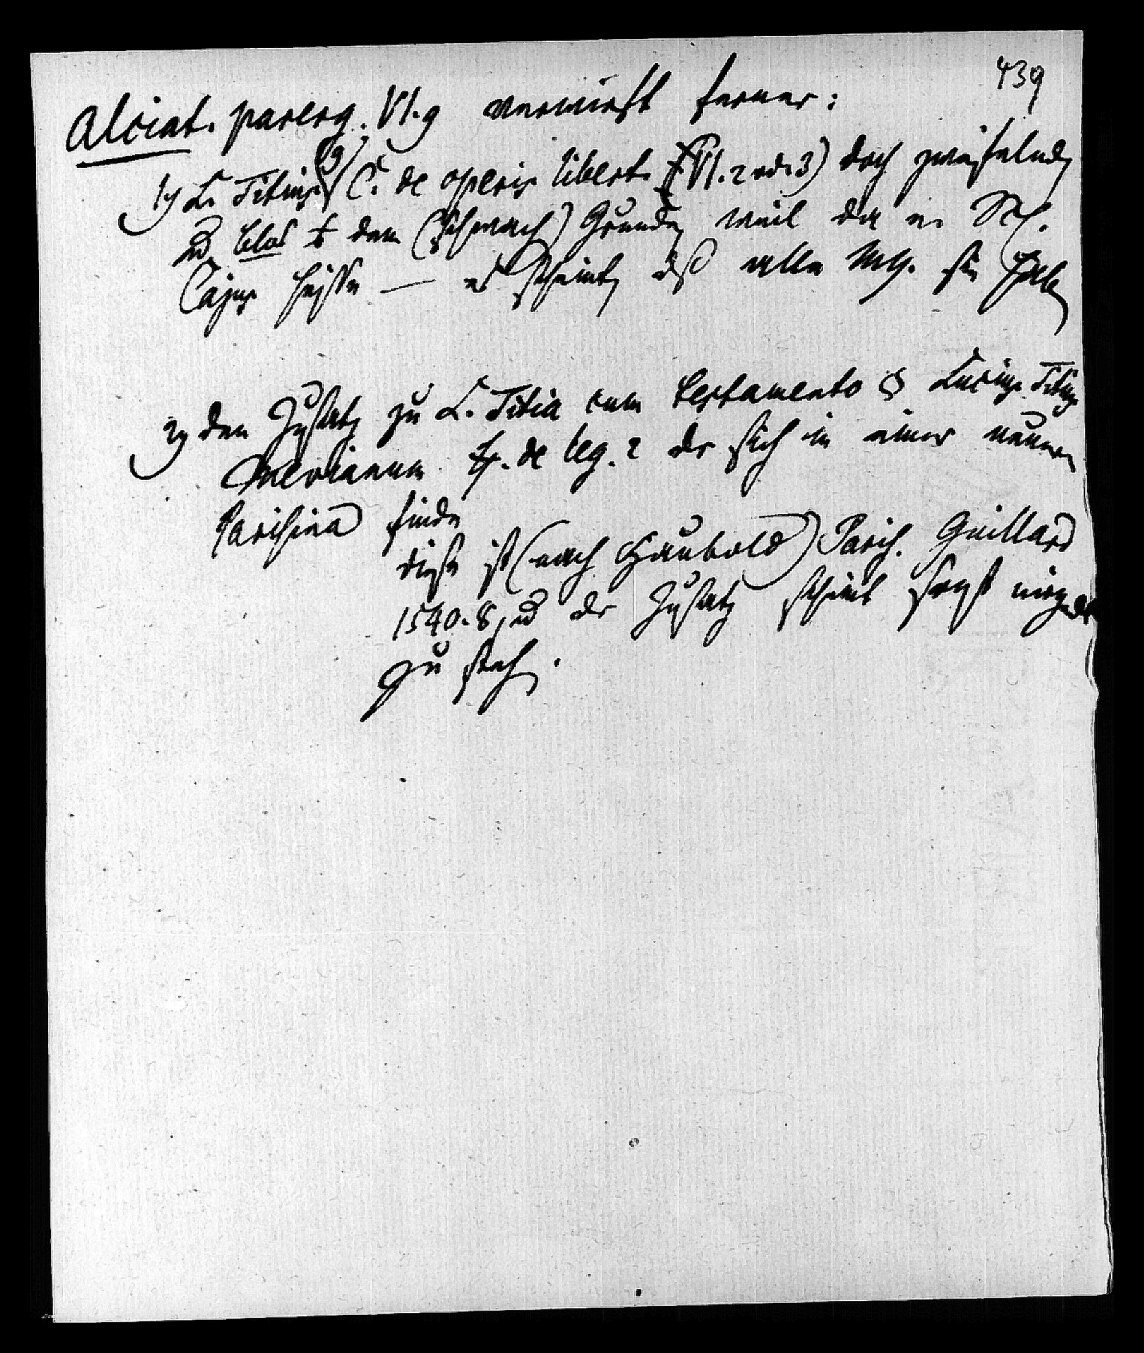 439
Alciat. parerg. VI. 9 verwirft ferner:
1) L. Titius (9) (C. de operis libert. VI. 2 od. 3) doch zweifelnd
u. blos aus dem (schwachen) Grunde weil da ein Rf.
Cajus heisse — es scheint daß alle Mss. sie haben
2) den Zusatz zu L. Titia cum testamento § Lucius Titius
Mevianum ff. de leg. 2 der sich in einer neuen
Parisina finde
diese ist (nach Haubold) Paris. Guillard
1540. 8, u der Zusatz scheint sonst nirgends
zu stehen.